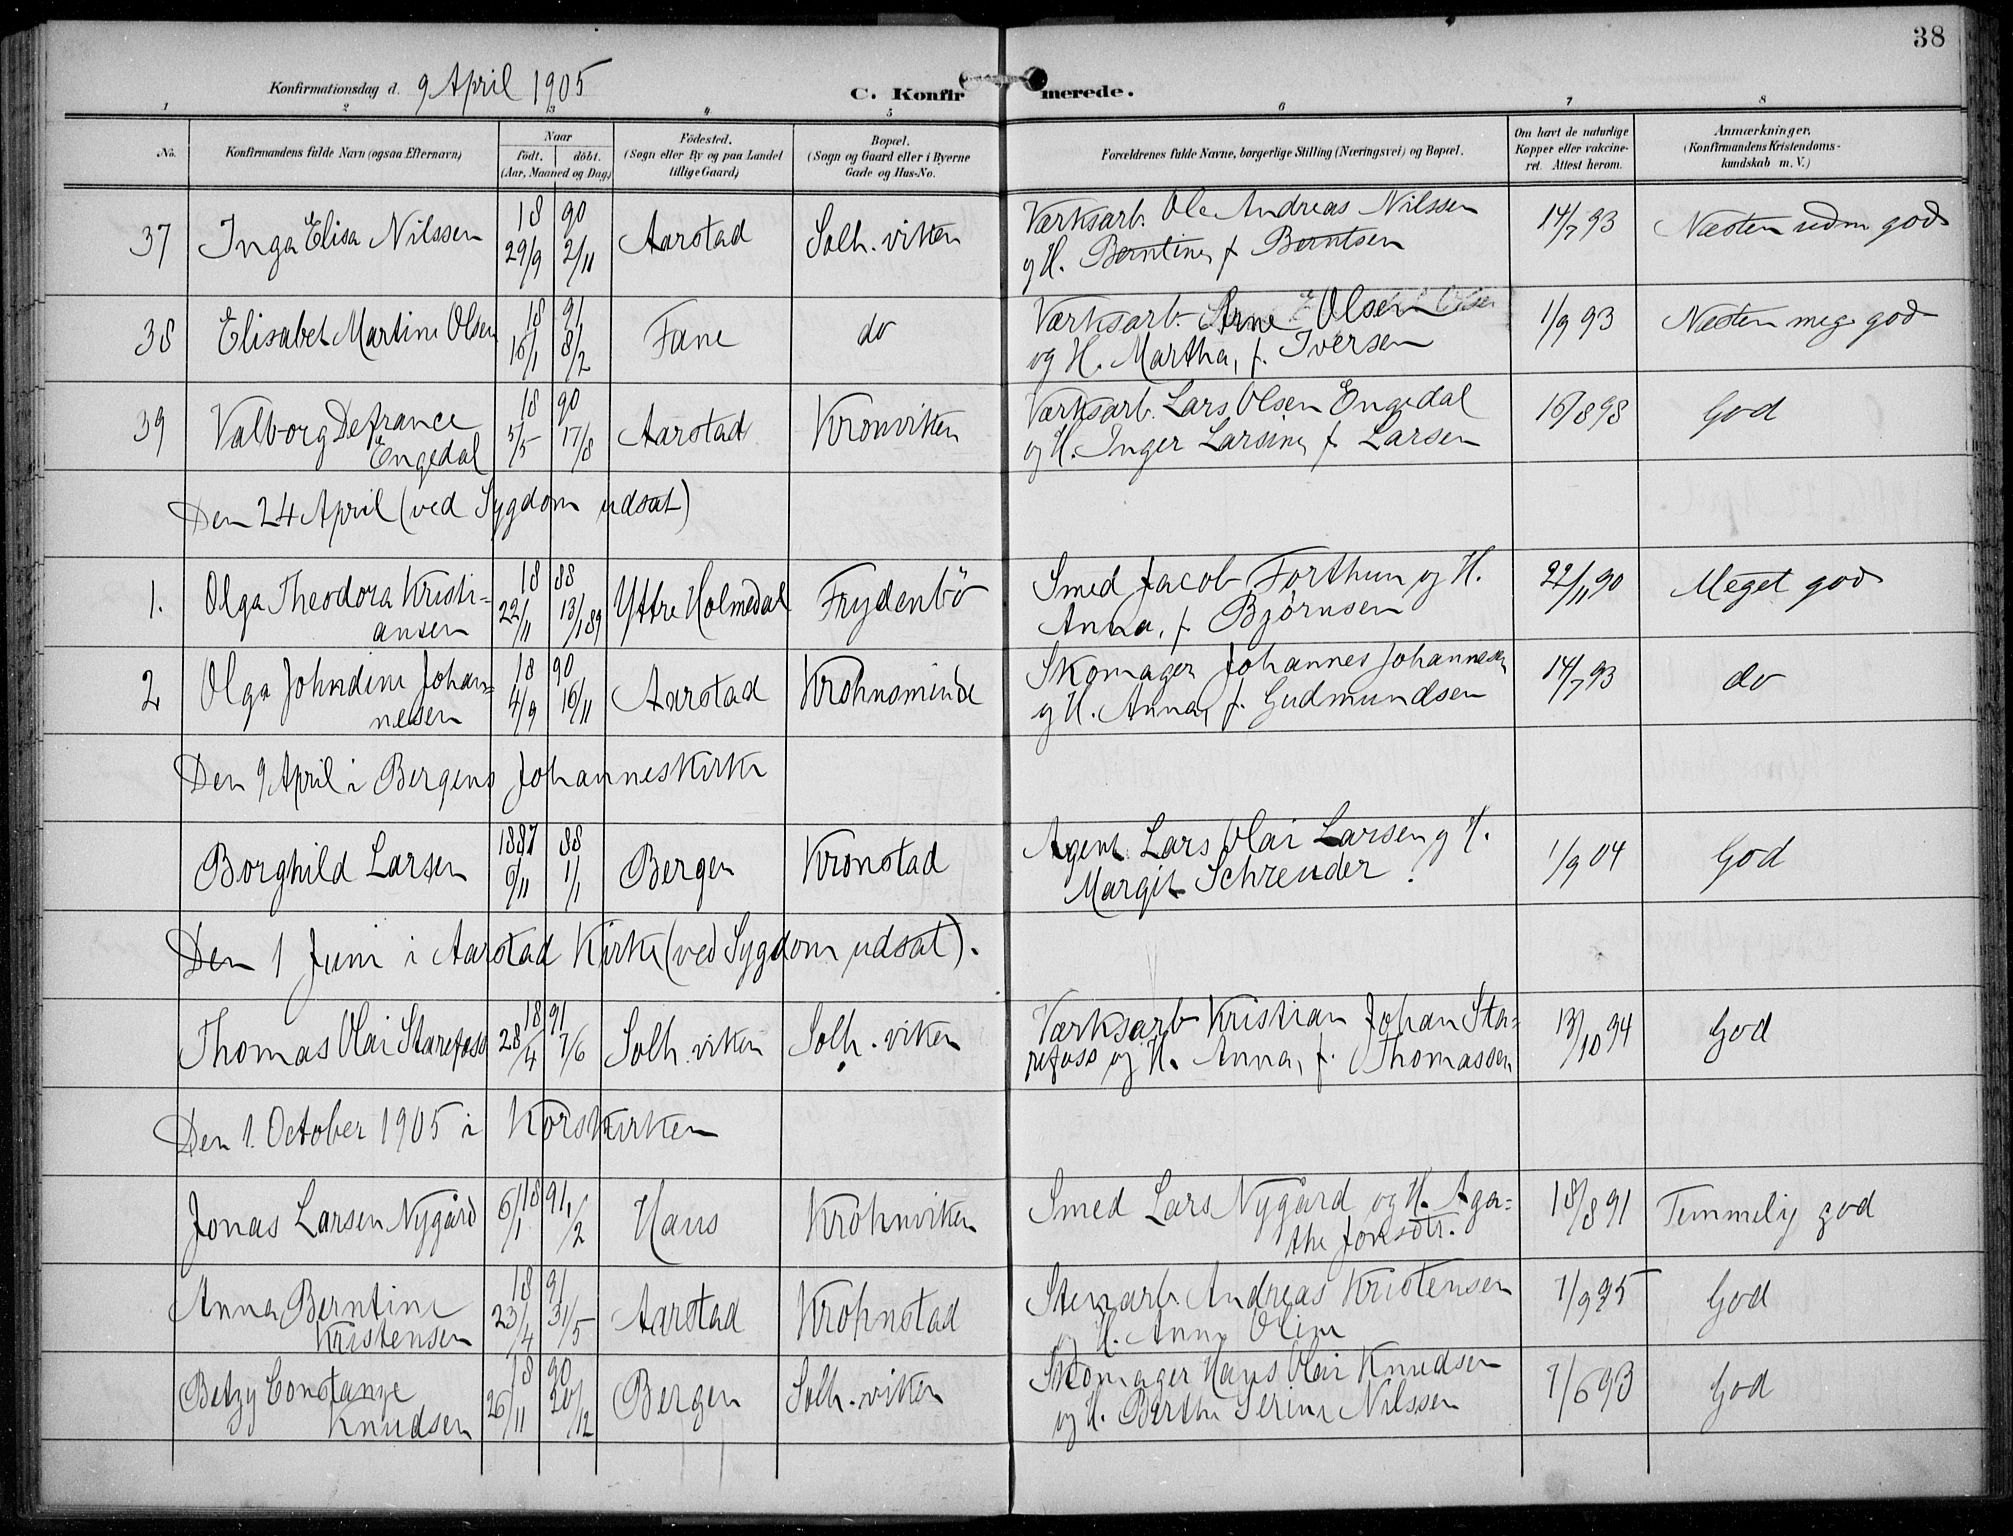 38
Konfirmationsdag d. 9 April 1905
C. Konfirmerede.
1 2 3 4 5 6 7 8
No.
Konfirmandens fulde Navn (ogsaa Efternavn)
Naar
födt. döbt.
(Aar, Maaned og Dag)
Födested.
(Sogn eller By og paa Landet
tillige Gaard)
Bopæl.
(Sogn og Gaard eller i Byerne
Gade og Hus-No.
Forældrenes fulde Navne, borgerlige Stilling (Næringsvei) og Bopæl.
Om havt de naturlige
Kopper eller vakcine-
ret. Attest herom.
Anmærkninger,
(Konfirmandens Kristendoms-
kundskab m. V.)
37 Inga Elisa Nilssen 18 90 29/9 2/11 Aarstad Solh. viken
Værksarb. Ole Andreas Nilssen
og H. Berntine, f. Berntsen
14/7 93 Næsten udm god
38 Elisabet Martine Olsen 18 91 16/1 8/2 Fane do
Værksarb. Arne E Olsen
og H. Martha, f. Iversen
1/9 93 Næsten meg god
39 Valborg Defrance
Engedal
18 90 5/5 17/8 Aarstad Kronviken
Værksarb. Lars Olsen Engedal
og H. Inger Larsine, f. Larsen
16/8 98 God
Den 24 April (ved Sygdom udsat)
1. Olga Theodora Kristi-
ansen
18 88 22/11 13/1 89 Yttre Holmedal Frydenbö
Smed Jacob Forthun og H.
Anna, f. Björnsen
22/11 90 Meget god
2 Olga Johndine Johan-
nesen
18 90 4/9 16/11 Aarstad Krohnsminde
Skomager Johannes Johannesen
og H. Anna, f. Gudmundsen
14/7 93 do
Den 9 April i Bergens Johanneskirke
Borghild Larsen 1887 88 6/11 1/1 Bergen Kronstad
Agent Lars Olai Larsen og H.
Margit Schreuder.
1/9 04 God
Den 1 Juni i Aarstad Kirke (ved Sygdom udsat).
Thomas Olai Starefoss 18 91 28/4 7/6 Solh. viken Solh. viken
Værksarb Kristian Johan Sta-
refoss og H. Anna, f. Thomassen
13/10 94 God
Den 1. October 1905 i Korskirken
Jonas Larsen Nygård 18 91 6/1 1/2 Haus Krohnviken
Smed Lars Nygård og H. Aga-
the Jonsdtr.
18/8 91 Temmelig god
Anna Berntine
Kristensen
18 91 23/4 31/5 Aarstad Krohnstad
Stenarb. Andreas Kristensen
og H. Anne Oline
7/9 95 God
Betzy Constanze
Knudsen
18 90 26/11 20/12 Bergen Solh. viken
Skomager Hans Olai Knudsen
og H. Berthe Serine Nilssen
7/6 93 God